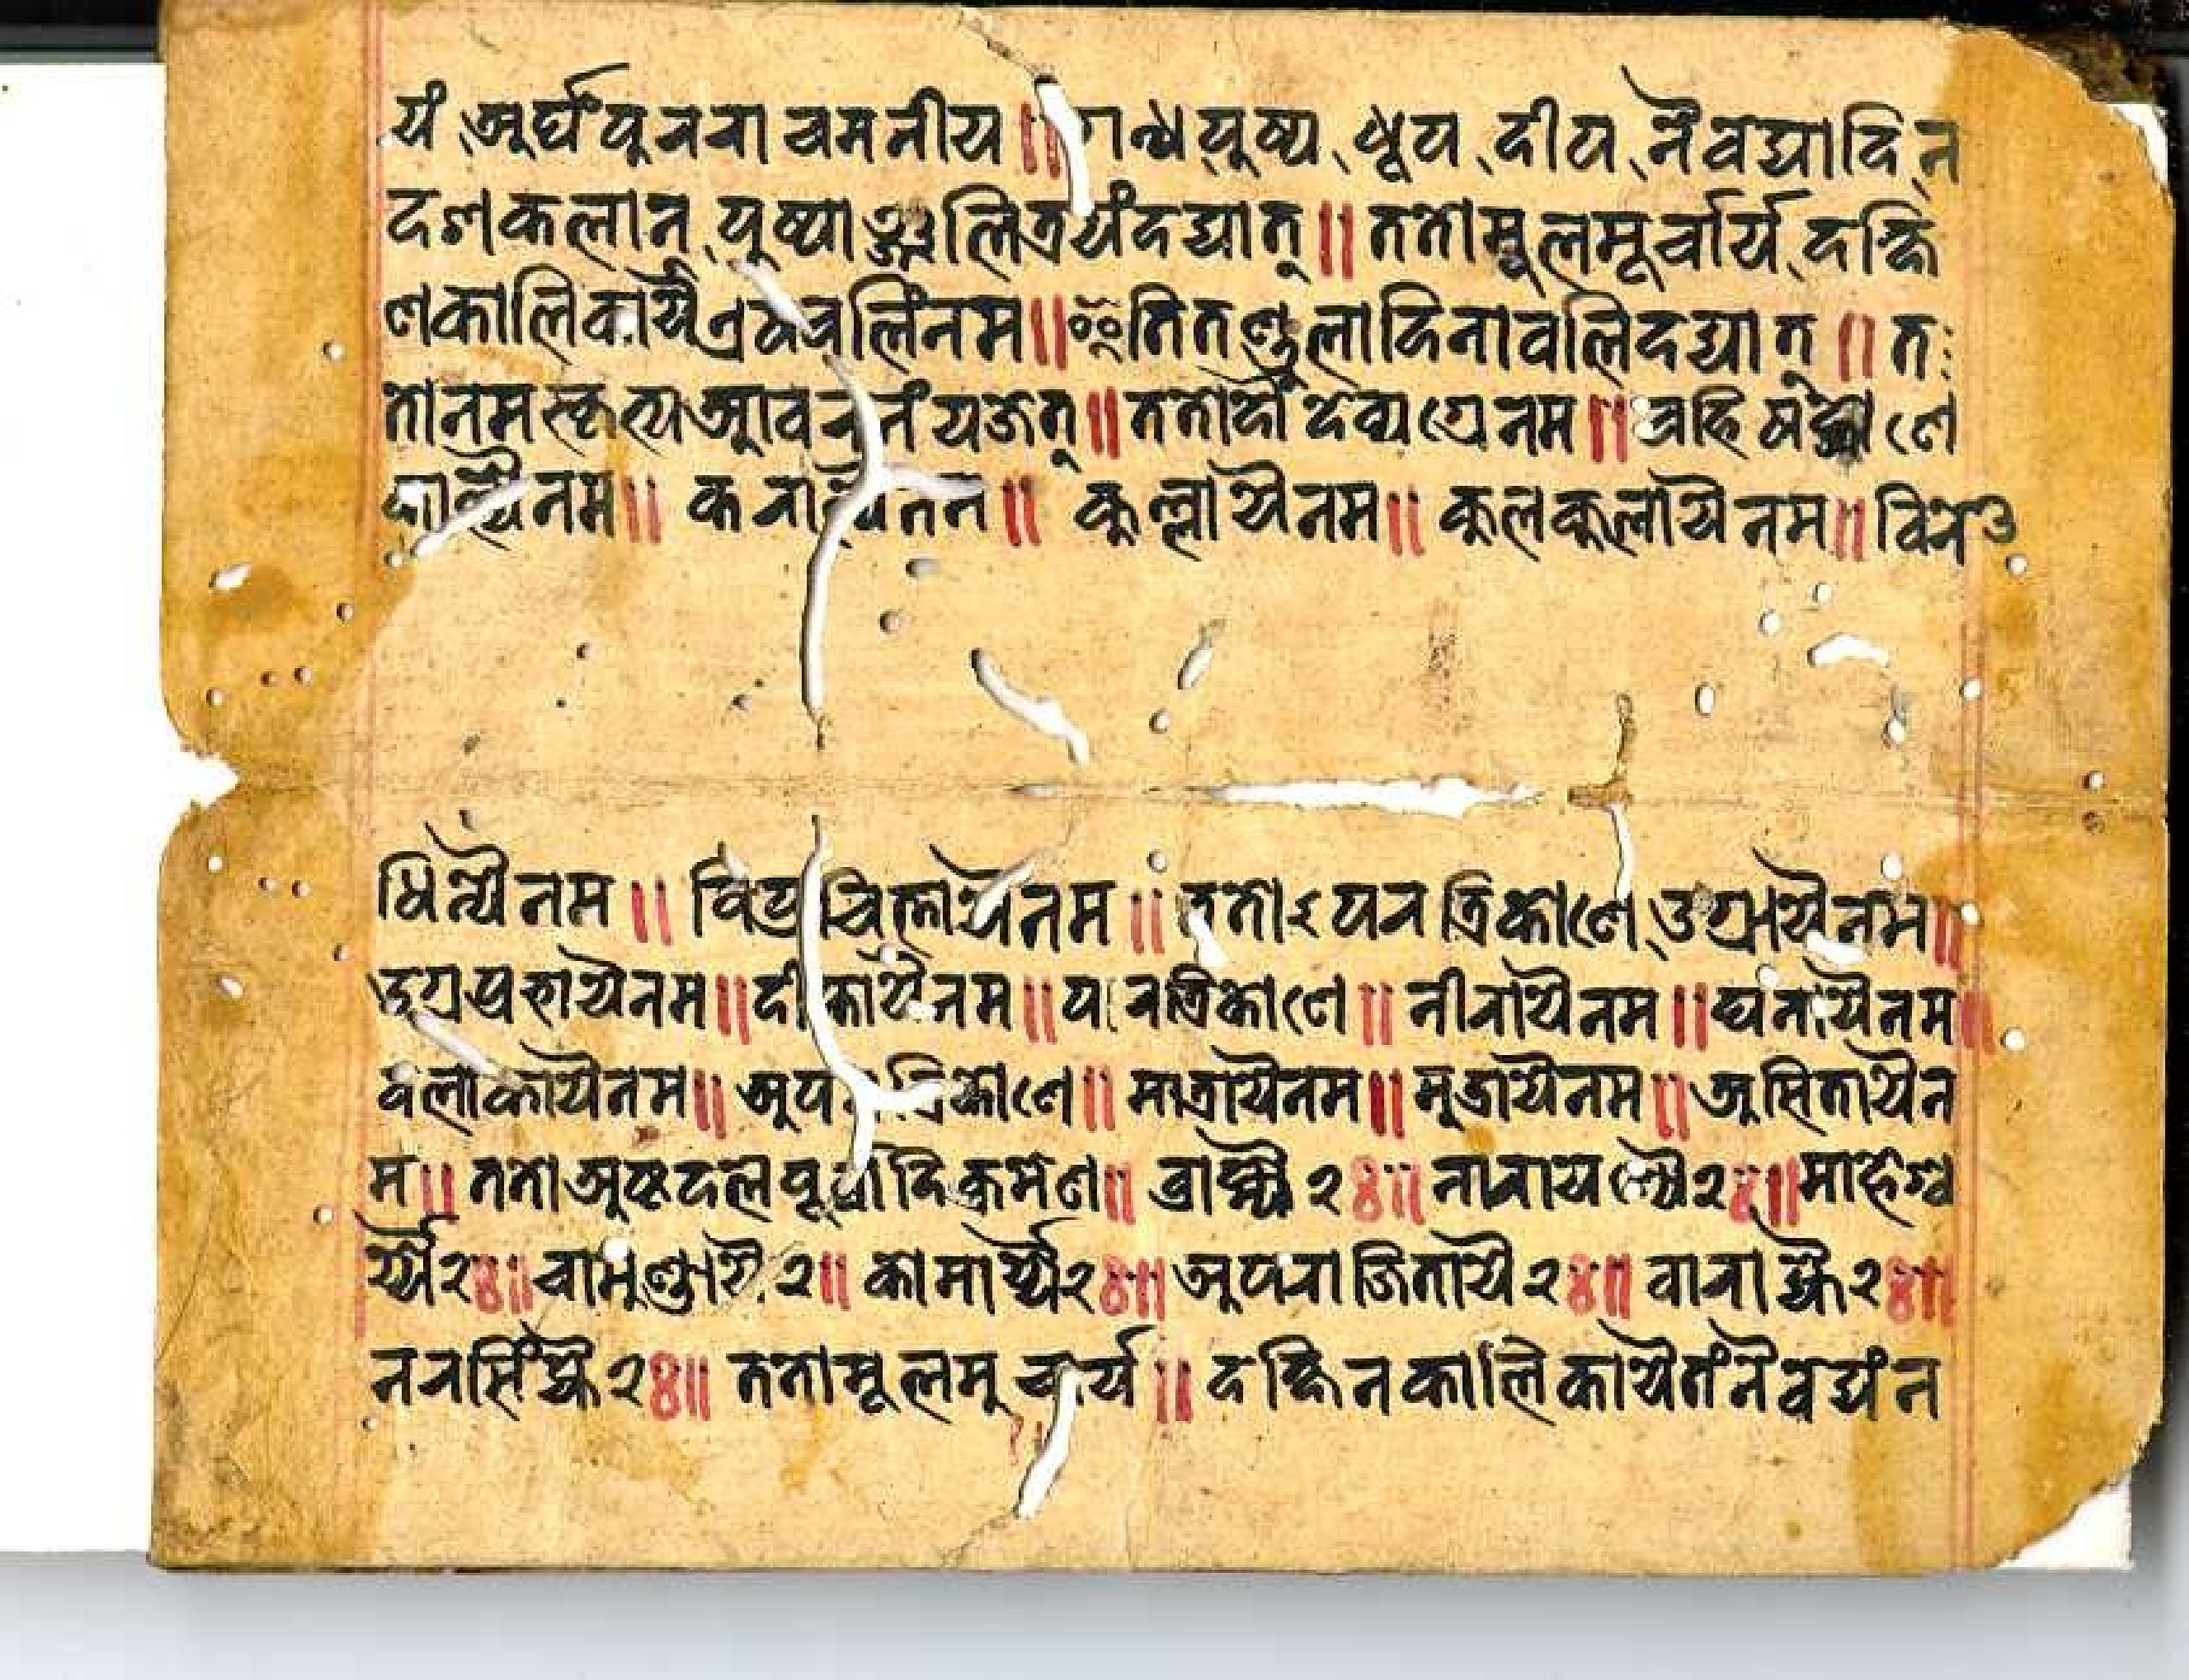 यं अर्घपुनराचमनीय ॥ गन्ध पुष्प धूप दीप नैवद्यादिन
दशकलान् पुष्पाञ्जलित्रयंदद्यात् ॥ ततोमुलमूर्चार्य दक्षि
णकालिकायैत्रषवलिंनम ॥ तितण्डुलादिनावलिदद्यात् ॥ त
तोनमस्कृत्यआवरनंयजेत् ॥ ततोदौ देव्यग्रेनम ॥ वहि षट्कोणे
काल्यैनम ॥ कुल्लायैनम ॥ कुलकुलायैनम ॥ विरो
धिन्यैनम ॥ विप्रचित्तायैनम ॥ ततोऽपरत्रिकोणे उग्रायैनम ॥
उग्रप्रभायैनम ॥ दीप्तायैनम ॥ परत्रिकोणे ॥ नीरायैनम ॥ घनायैनम ॥
वलाकायैनम ॥ अप त्रिकोणे ॥ मात्रायैनम ॥ मुद्रायैनम ॥ असितायैन
म ॥ ततोअष्टदलपूर्वादिक्रमेण ॥ ब्राह्म्यै २४॥ नारायण्यै २४॥ माहेश्व
र्य्यै २४॥ चामुण्डायै २॥ कौमार्य्यै २४॥ अपराजितायै २४॥ वाराह्यै २४॥
नरसिंह्यै २४॥ ततोमूलमुचार्य ॥ दक्षिनकालिकायैतंनैवद्यंन